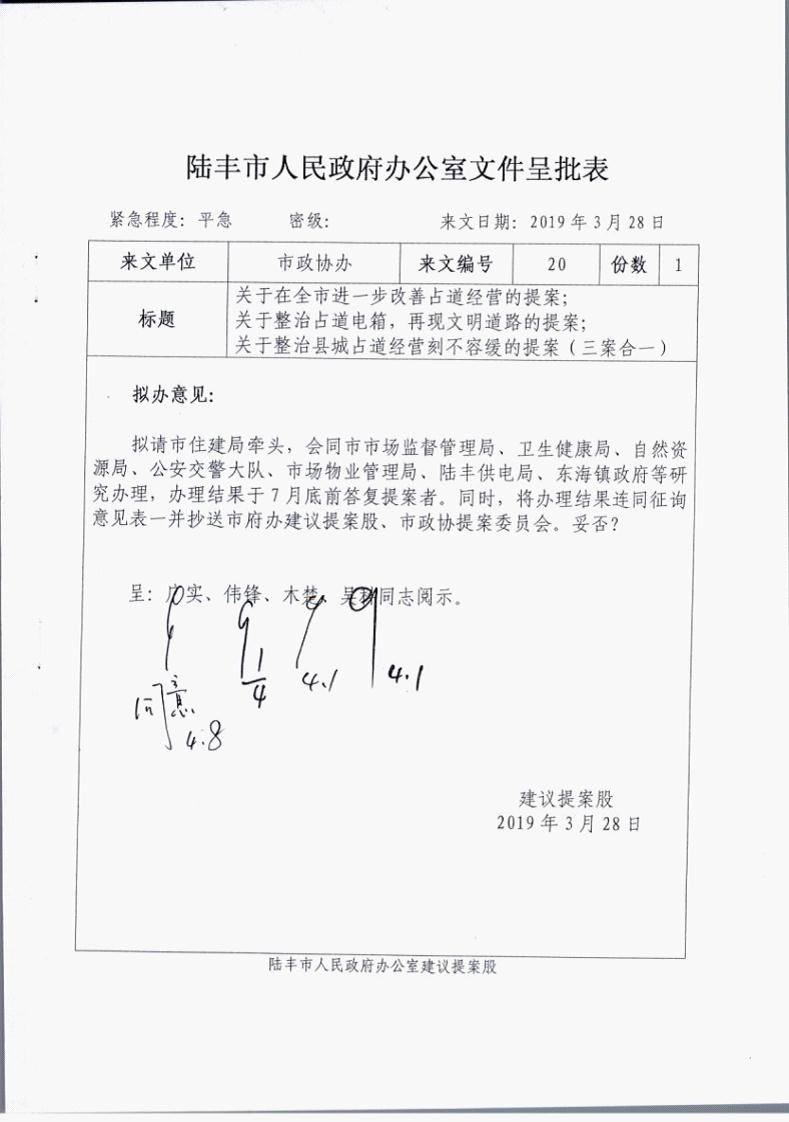 陆丰市人民政府办公室文件呈批表
紧急程度：平急 密级： 来文日期：2019年3月28日
来文单位 市政协办 来文编号 20 份数 1
标题
关于在全市进一步改善占道经营的提案；
关于整治占道电箱，再现文明道路的提案；
关于整治县城占道经营刻不容缓的提案（三案合一）
拟办意见：
拟请市住建局牵头，会同市市场监督管理局、卫生健康局、自然资
源局、公安交警大队、市场物业管理局、陆丰供电局、东海镇政府等研
究办理，办理结果于7月底前答复提案者。同时，将办理结果连同征询
意见表一并抄送市府办建议提案股、市政协提案委员会。妥否？
呈：实、伟锋、木楚、吴同志阅示。
1/4 4.1 4.1
同意
4.8
建议提案股
2019年3月28日
陆丰市人民政府办公室建议提案股